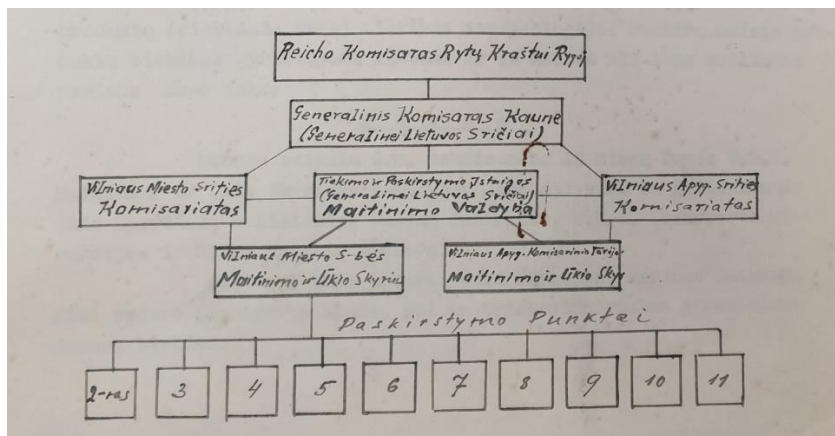 Reicho Komisaras Rytų Kraštui Rygoj
Generalinis Komisaras Kaune
(Generalinei Lietuvos Sričiai)
Vilniaus Miesto Srities
Komisariatas
Tiekimo ir Paskirstymo Įstaigos
(Generalinei Lietuvos Sričiai)
Maitinimo Valdyba
Vilniaus Apyg. Srities
Komisariatas
Vilniaus Miesto S-bės
Maitinimo ir Ūkio Skyrius
Vilniaus Apyg. Komisarinio
Maitinimo ir Ūkio Skyr
Paskirstymo Punktai
2-ras
3
4
5
6
7
8
9
10
11